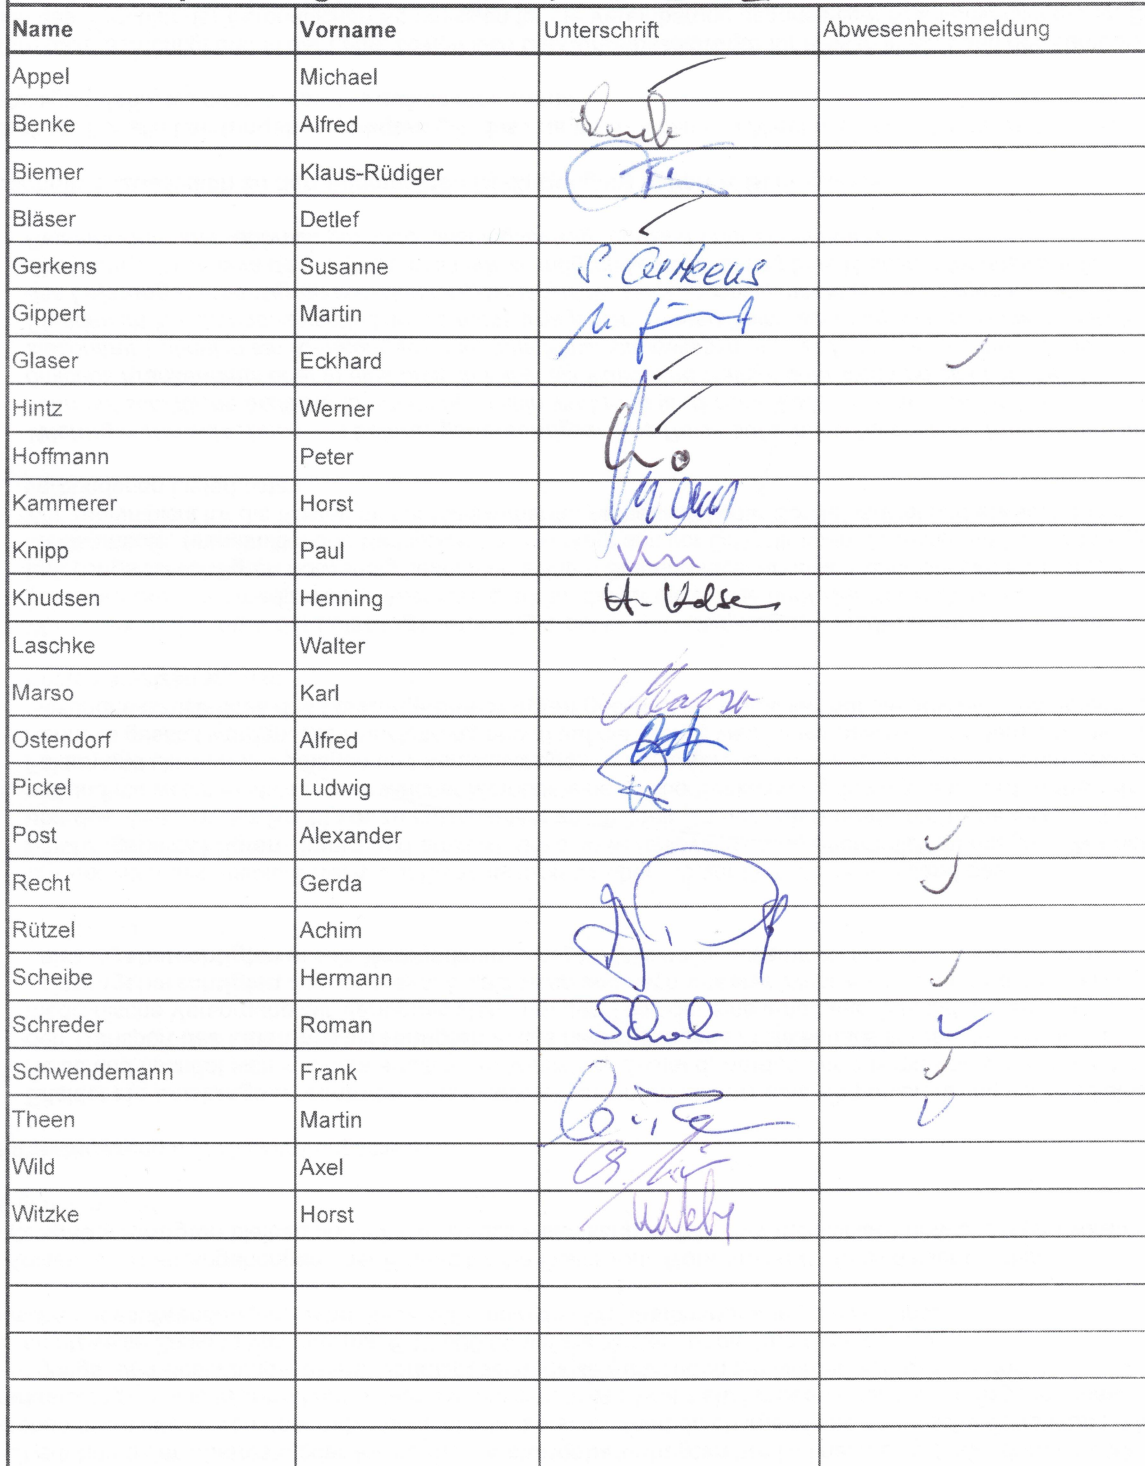 Name Vorname Unterschrift Abwesenheitsmeldung
Appel Michael
Benke Alfred
Biemer Klaus-Rüdiger
Bläser Detlef
Gerkens Susanne S. Gerkens
Gippert Martin
Glaser Eckhard
Hintz Werner
Hoffmann Peter
Kammerer Horst
Knipp Paul
Knudsen Henning
Laschke Walter
Marso Karl
Ostendorf Alfred
Pickel Ludwig
Post Alexander
Recht Gerda
Rützel Achim
Scheibe Hermann
Schreder Roman
Schwendemann Frank
Theen Martin
Wild Axel
Witzke Horst